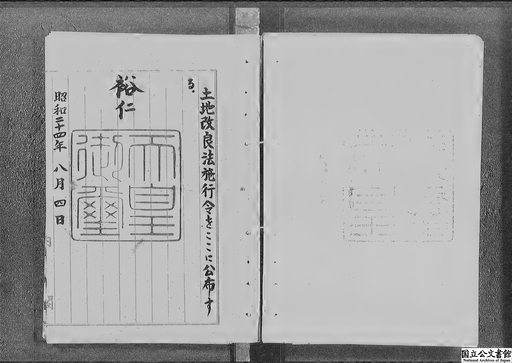 土地改良法施行令をここに公布す
る。
裕仁
天皇
御璽
昭和二十四年八月四日
国立公文書館
National Archives of Japan